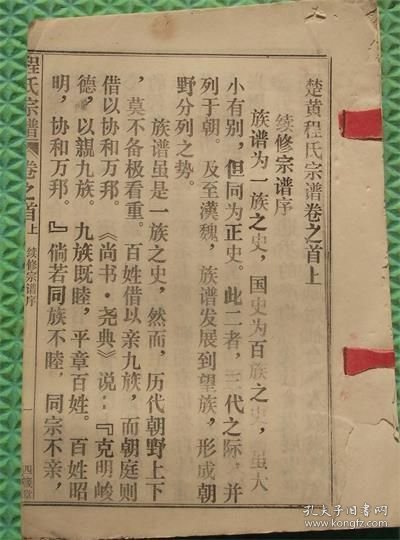 楚黄程氏宗谱卷之首上
续修宗谱序
族谱为一族之史，国史为百族之史，虽大
小有别，但同为正史。此二者，三代之际，并
列于朝。及至漢魏，族谱发展到望族，形成朝
野分列之势。
族谱虽是一族之史，然而，历代朝野上下
，莫不备极看重。百姓借以亲九族，而朝庭则
借以协和万邦。《尚书·尧典》说：『克明峻
德，以親九族。九族既睦，平章百姓。百姓昭
明，协和万邦。』倘若同族不睦，同宗不亲，
程氏宗谱 卷之首上 续修宗谱序 一 四箴堂
孔夫子旧书网
www.kongfz.com